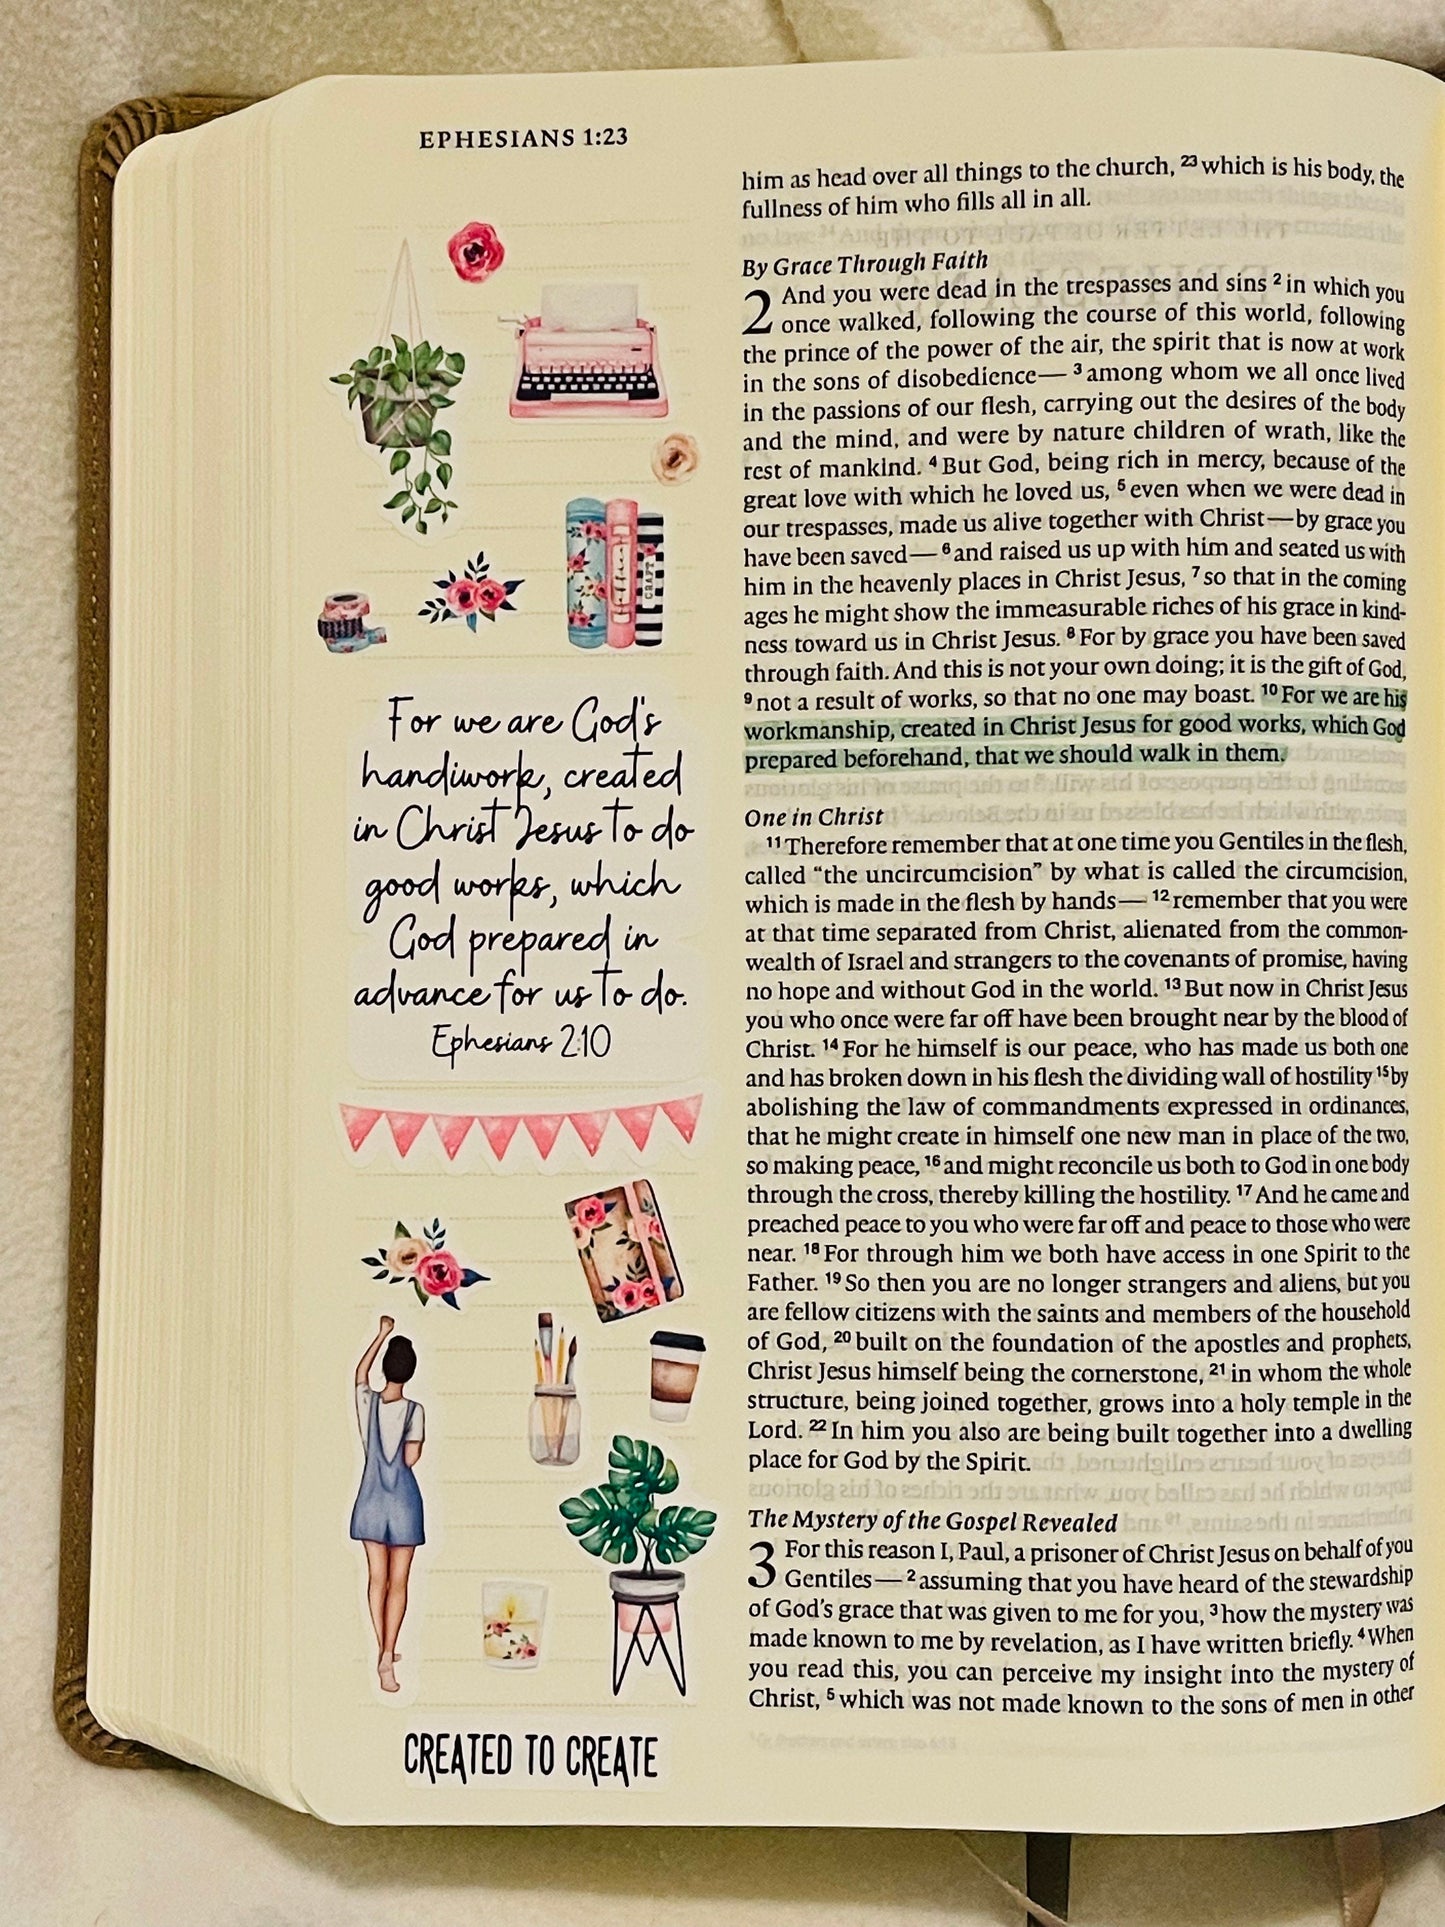 EPHESIANS 1:23
For we are God's
handiwork, created
in Christ Jesus to do
good works, which
God prepared in
advance for us to do.
Ephesians 2:10
CRAFT
CREATED TO CREATE
him as head over all things to the church, 23 which is his body, the
fullness of him who fills all in all.
By Grace Through Faith
2 And you were dead in the trespasses and sins 2 in which you
once walked, following the course of this world, following
the prince of the power of the air, the spirit that is now at work
in the sons of disobedience— 3 among whom we all once lived
in the passions of our flesh, carrying out the desires of the body
and the mind, and were by nature children of wrath, like the
rest of mankind. 4 But God, being rich in mercy, because of the
great love with which he loved us, 5 even when we were dead in
our trespasses, made us alive together with Christ—by grace you
have been saved— 6 and raised us up with him and seated us with
him in the heavenly places in Christ Jesus, 7 so that in the coming
ages he might show the immeasurable riches of his grace in kind-
ness toward us in Christ Jesus. 8 For by grace you have been saved
through faith. And this is not your own doing; it is the gift of God,
9 not a result of works, so that no one may boast. 10 For we are his
workmanship, created in Christ Jesus for good works, which God
prepared beforehand, that we should walk in them.
One in Christ
11 Therefore remember that at one time you Gentiles in the flesh,
called “the uncircumcision” by what is called the circumcision,
which is made in the flesh by hands— 12 remember that you were
at that time separated from Christ, alienated from the common-
wealth of Israel and strangers to the covenants of promise, having
no hope and without God in the world. 13 But now in Christ Jesus
you who once were far off have been brought near by the blood of
Christ. 14 For he himself is our peace, who has made us both one
and has broken down in his flesh the dividing wall of hostility 15 by
abolishing the law of commandments expressed in ordinances,
that he might create in himself one new man in place of the two,
so making peace, 16 and might reconcile us both to God in one body
through the cross, thereby killing the hostility. 17 And he came and
preached peace to you who were far off and peace to those who were
near. 18 For through him we both have access in one Spirit to the
Father. 19 So then you are no longer strangers and aliens, but you
are fellow citizens with the saints and members of the household
of God, 20 built on the foundation of the apostles and prophets,
Christ Jesus himself being the cornerstone, 21 in whom the whole
structure, being joined together, grows into a holy temple in the
Lord. 22 In him you also are being built together into a dwelling
place for God by the Spirit.
The Mystery of the Gospel Revealed
3 For this reason I, Paul, a prisoner of Christ Jesus on behalf of you
Gentiles— 2 assuming that you have heard of the stewardship
of God's grace that was given to me for you, 3 how the mystery was
made known to me by revelation, as I have written briefly. 4 When
you read this, you can perceive my insight into the mystery of
Christ, 5 which was not made known to the sons of men in other